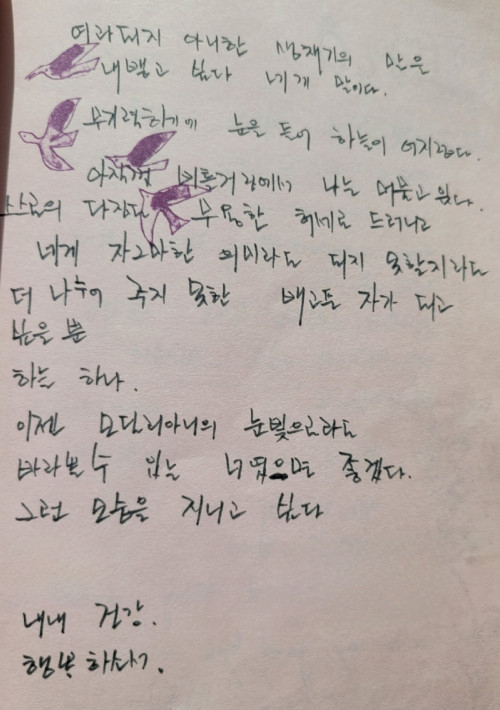 여과되지 아니한 생채기의 말은
내뱉고 싶다 네게 말이다.
무기력하기에 눈을 들어 하늘이 어지럽다.
아직껏 비틀거림에서 나는 머물고 있다.
산료의 다짐도 무용한 허세로 드러나고
네게 자그마한 의미라도 되지 못할지라도
더 나추어 죽지 못한 배고픈 자가 되고
싶을 뿐
하늘 하나.
이젠 모딜리아니의 눈빛으로라도
바라볼 수 있는 너였으면 좋겠다.
그런 모습을 지니고 싶다
내내 건강.
행복하소서.